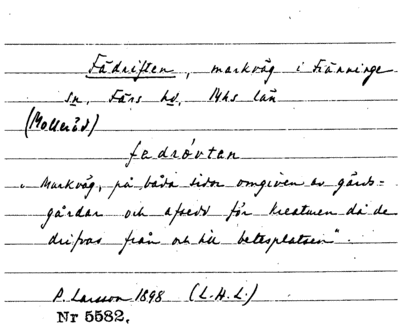 Fädriften, markväg i Tränninge
sn, Färs hd, Mhs län
(Molleröd)
fadrøvtan
"Markväg, på båda sidor omgiven av gärds-
gårdar och afsedd för kreaturen då de
drifvas från och till betesplatsen".
P. Larsson 1898 (L.H.L.)
Nr 5582.